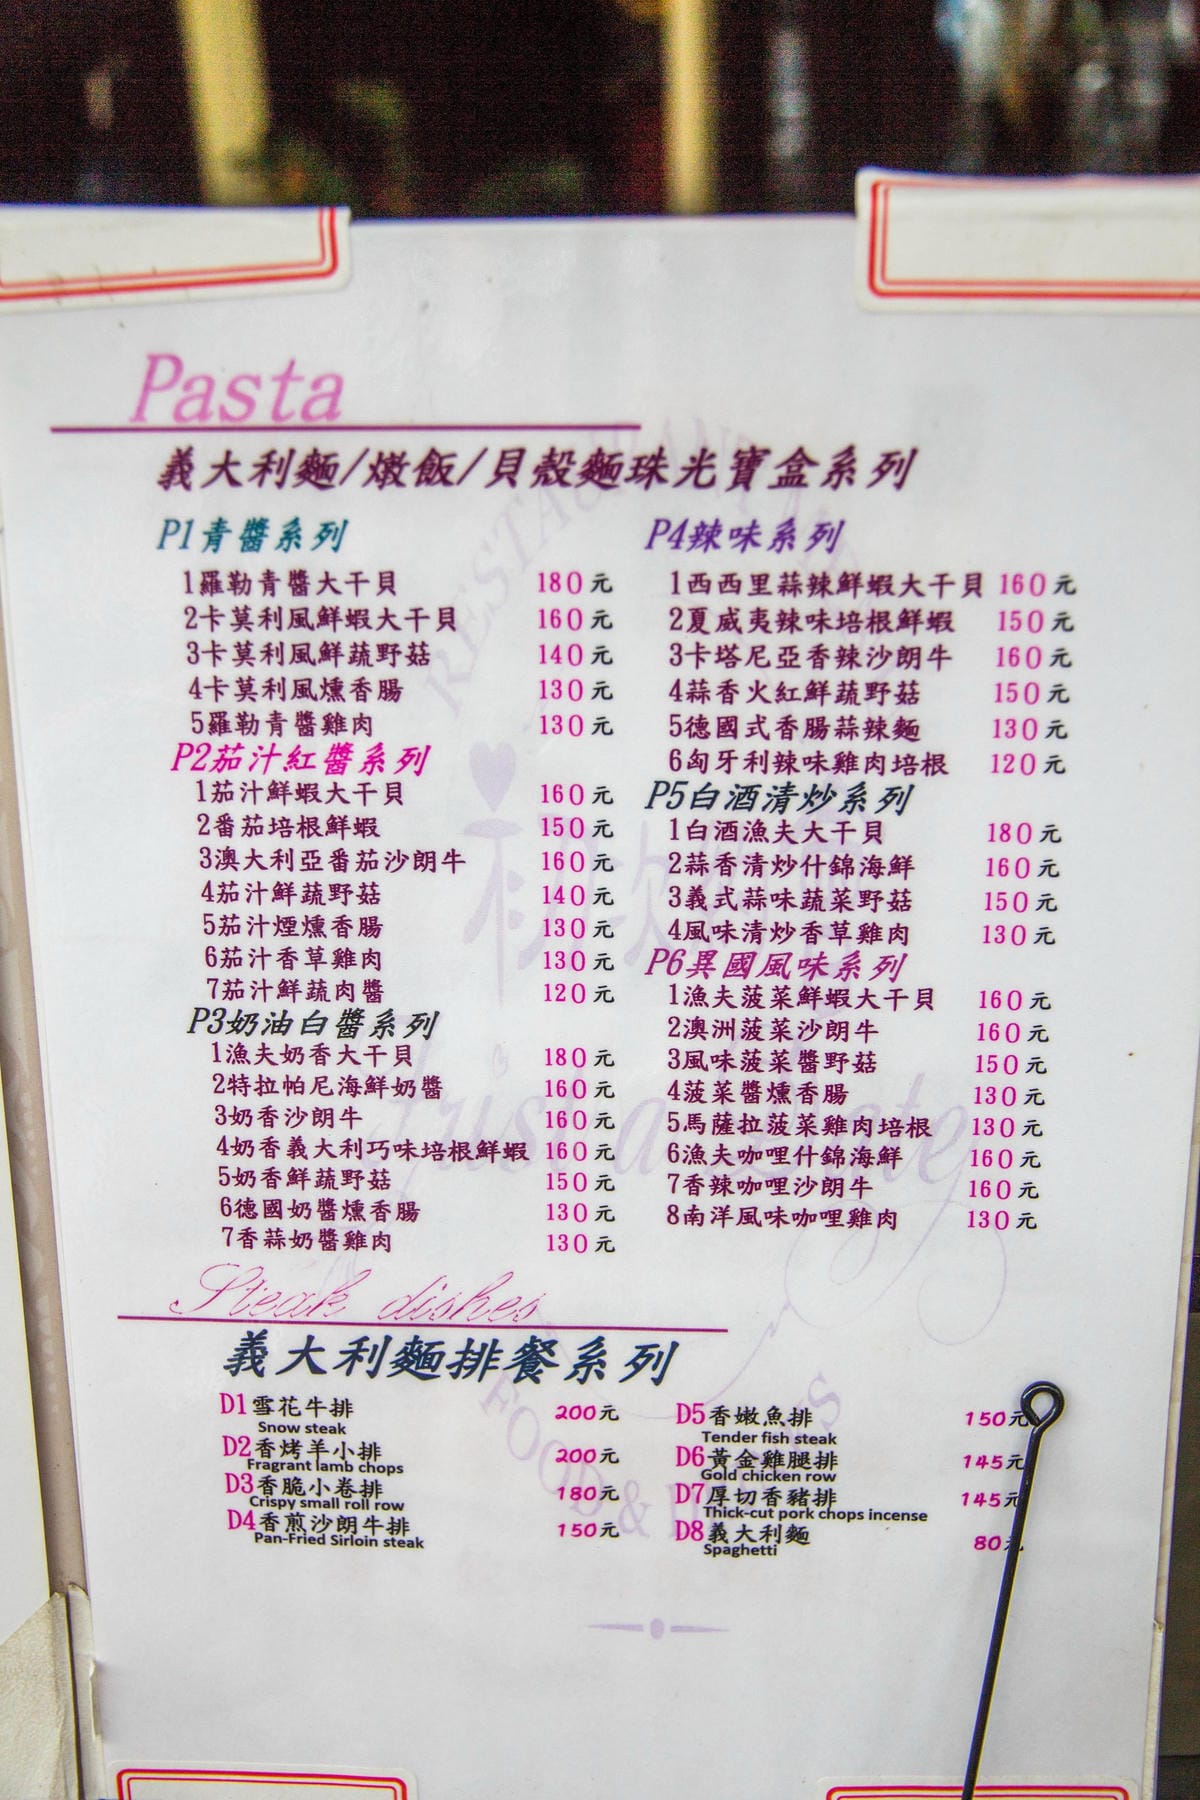 Pasta
義大利麵/燉飯/貝殼麵珠光寶盒系列
P1青醬系列
1羅勒青醬大干貝 180元
2卡莫利風鮮蝦大干貝 160元
3卡莫利風鮮蔬野菇 140元
4卡莫利風燻香腸 130元
5羅勒青醬雞肉 130元
P2茄汁紅醬系列
1茄汁鮮蝦大干貝 160元
2番茄培根鮮蝦 150元
3澳大利亞番茄沙朗牛 160元
4茄汁鮮蔬野菇 140元
5茄汁煙燻香腸 130元
6茄汁香草雞肉 130元
7茄汁鮮蔬肉醬 120元
P3奶油白醬系列
1漁夫奶香大干貝 180元
2特拉帕尼海鮮奶醬 160元
3奶香沙朗牛 160元
4奶香義大利巧味培根鮮蝦 160元
5奶香鮮蔬野菇 150元
6德國奶醬燻香腸 130元
7香蒜奶醬雞肉 130元
P4辣味系列
1西西里蒜辣鮮蝦大干貝 160元
2夏威夷辣味培根鮮蝦 150元
3卡塔尼亞香辣沙朗牛 160元
4蒜香火紅鮮蔬野菇 150元
5德國式香腸蒜辣麵 130元
6匈牙利辣味雞肉培根 120元
P5白酒清炒系列
1白酒漁夫大干貝 180元
2蒜香清炒什錦海鮮 160元
3義式蒜味蔬菜野菇 150元
4風味清炒香草雞肉 130元
P6異國風味系列
1漁夫菠菜鮮蝦大干貝 160元
2澳洲菠菜沙朗牛 160元
3風味菠菜醬野菇 150元
4菠菜醬燻香腸 130元
5馬薩拉菠菜雞肉培根 130元
6漁夫咖哩什錦海鮮 160元
7香辣咖哩沙朗牛 160元
8南洋風味咖哩雞肉 130元
Steak dishes
義大利麵排餐系列
D1雪花牛排 200元
Snow steak
D2香烤羊小排 200元
Fragrant lamb chops
D3香脆小卷排 180元
Crispy small roll row
D4香煎沙朗牛排 150元
Pan-Fried Sirloin steak
D5香嫩魚排 150元
Tender fish steak
D6黃金雞腿排 145元
Gold chicken row
D7厚切香豬排 145元
Thick-cut pork chops incense
D8義大利麵 80元
Spaghetti